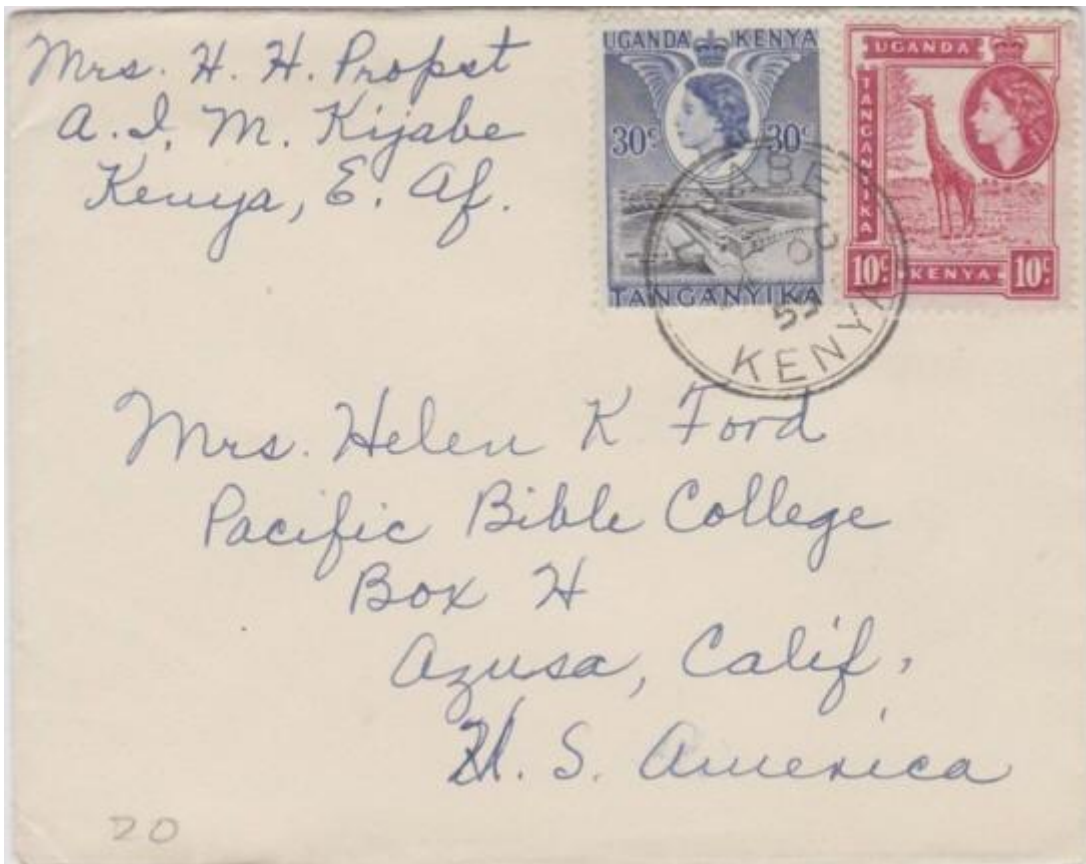 Mrs. H. H. Propst
A. I. M. Kijabe
Kenya, E. Af.
UGANDA KENYA
30c 30c
TANGANYIKA
UGANDA
TANGANYIKA
10c KENYA 10c
KIJABE
OC
KENYA
Mrs. Helen K. Ford
Pacific Bible College
Box H
Azusa, Calif,
U. S. America
20